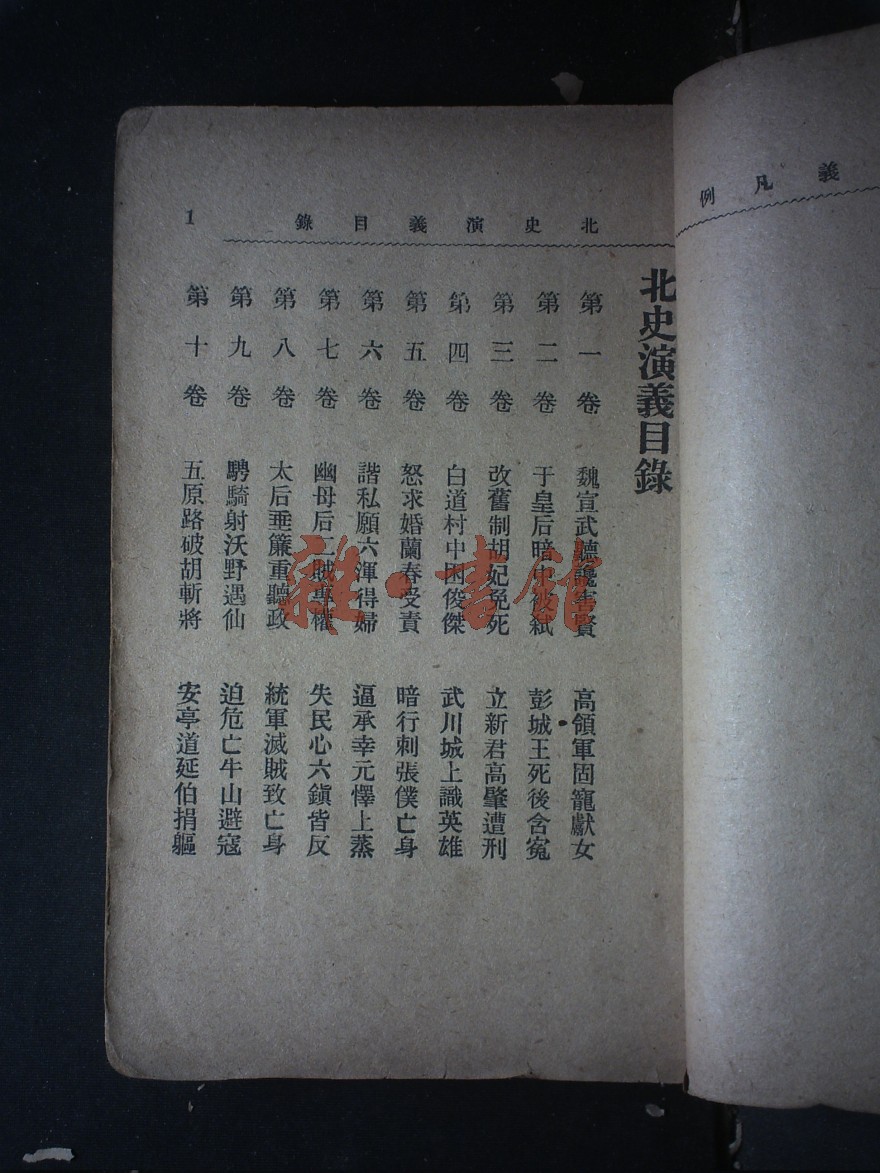 義凡例
北史演義目錄 1
北史演義目錄
第一卷 魏宣武聽讒害賢 高領軍固寵獻女
第二卷 于皇后暗中被弒 彭城王死後含冤
第三卷 改舊制胡妃免死 立新君高肇遭刑
第四卷 白道村中困俊傑 武川城上識英雄
第五卷 怒求婚蘭春受責 暗行刺張僕亡身
第六卷 諧私願六渾得婦 逼承幸元懌上蒸
第七卷 幽母后二賊專權 失民心六鎮皆反
第八卷 太后垂簾重聽政 統軍滅賊致亡身
第九卷 騁騎射沃野遇仙 迫危亡牛山避寇
第十卷 五原路破胡斬將 安亭道延伯捐軀
雜·書館